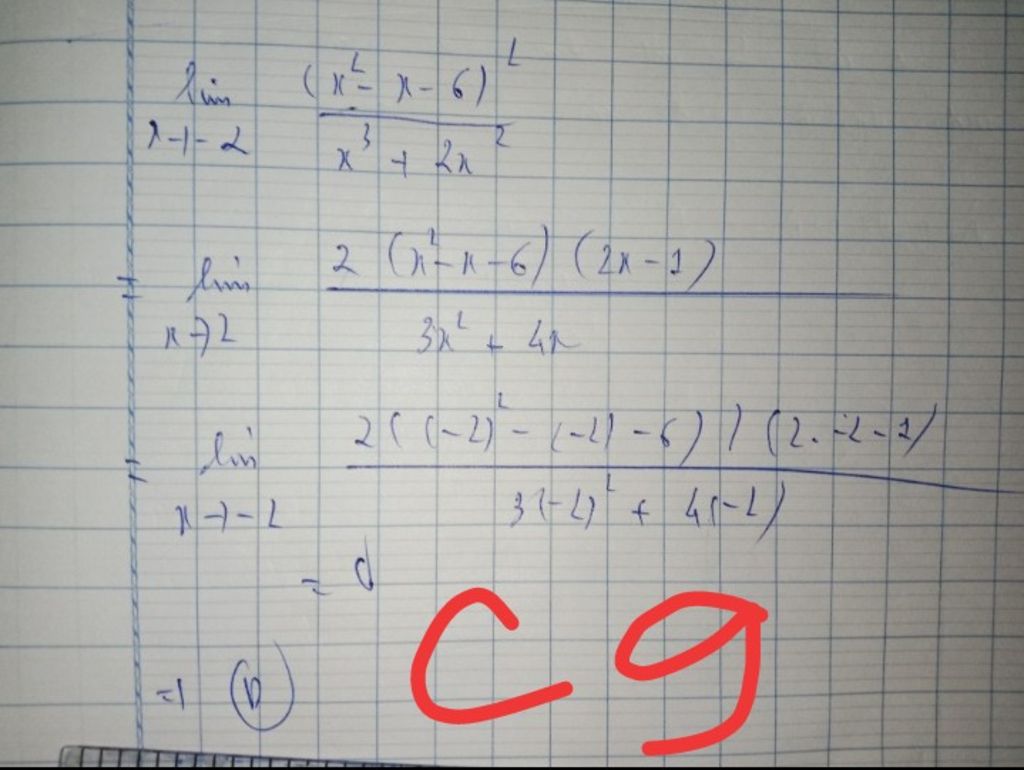 lim (x² - x - 6)² / x³ + 2x²
x → -2
= lim 2 (x² - x - 6) (2x - 1) / 3x² + 4x
x → 2
= lim 2 ( (-2)² - (-2) - 6) ) (2. -2 - 1) / 3(-2)² + 4(-2)
x → -2
= 0
⇒ D
C9